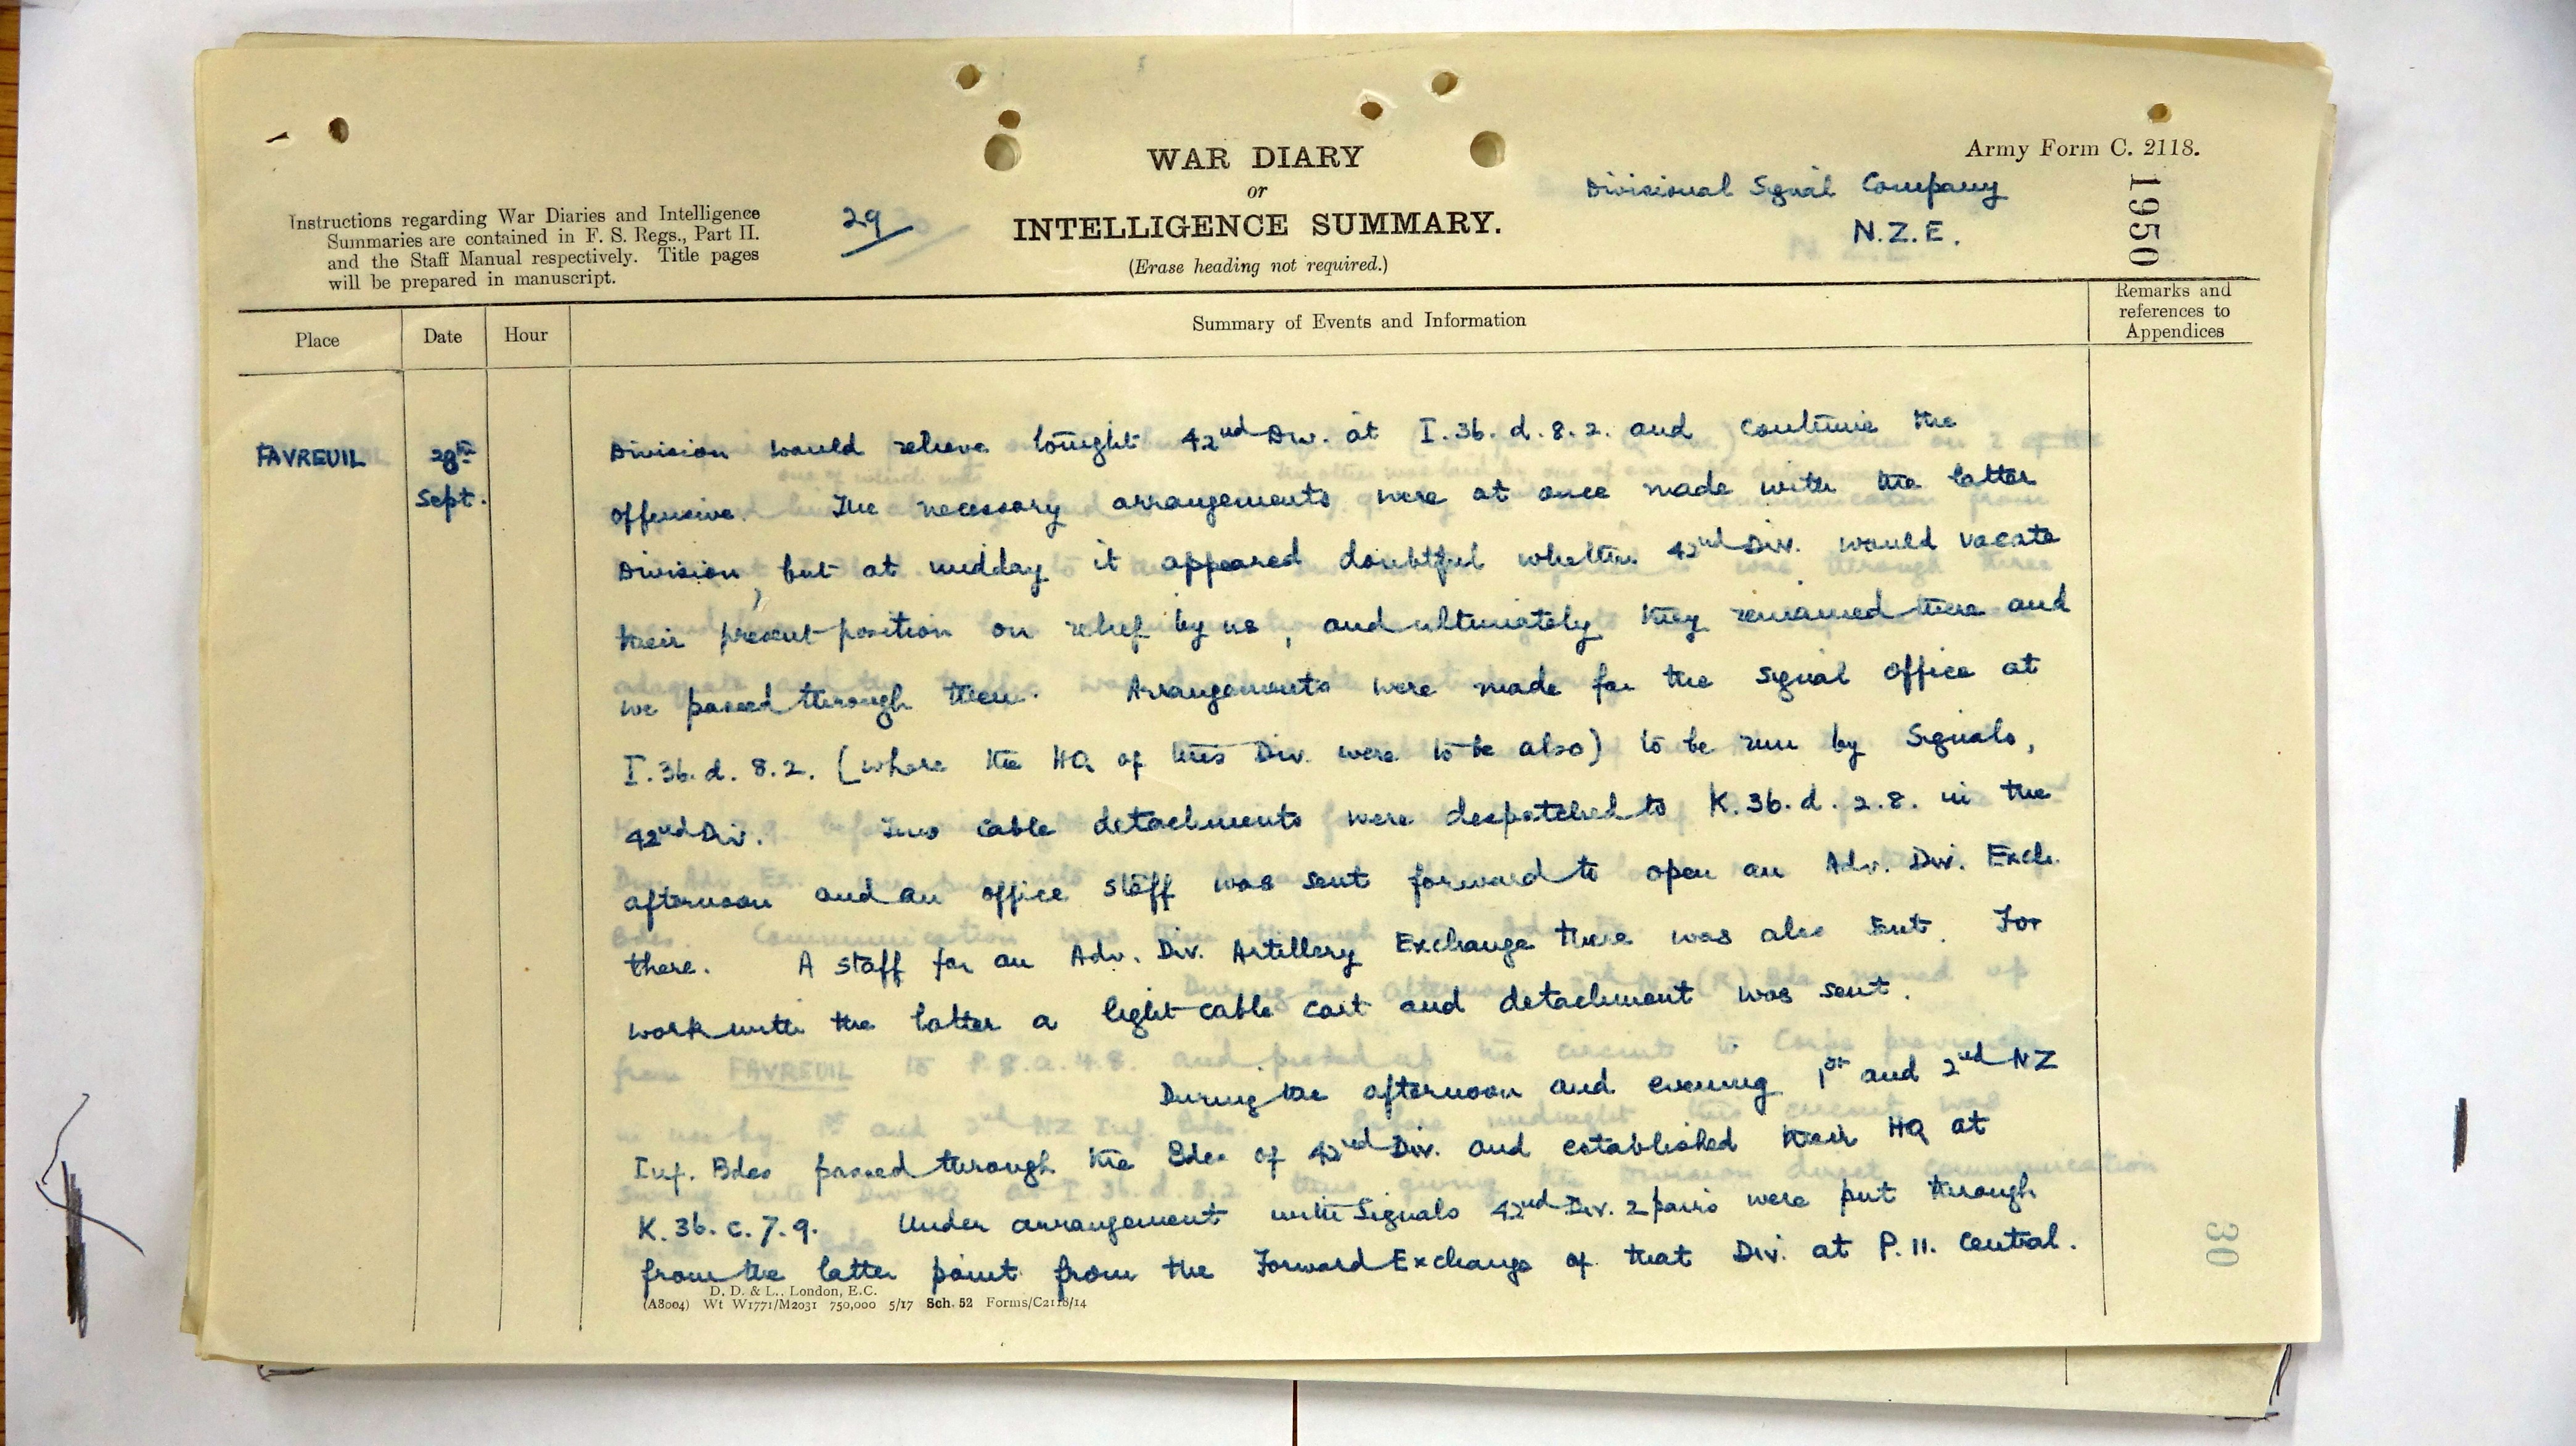 Army Form C. 2118.
WAR DIARY
or
INTELLIGENCE SUMMARY.
(Erase heading not required.)
Instructions regarding War Diaries and Intelligence
Summaries are contained in F. S. Regs., Part II.
and the Staff Manual respectively. Title pages
will be prepared in manuscript.
29
Divisional Signal Company
N.Z.E.
1950
Place
Date
Hour
Summary of Events and Information
Remarks and
references to
Appendices
FAVREUIL
28th
Sept.
Division would relieve tonight 42nd Div. at I.36.d.8.2. and continue the
offensive. The necessary arrangements were at once made with the latter
Division, but at midday it appeared doubtful whether 42nd Div. would vacate
their present position on relief by us, and ultimately they remained there and
we passed through them. Arrangements were made for the Signal Office at
I.36.d.8.2. (where the HQ of this Div. were to be also) to be run by Signals,
42nd Div. Two cable detachments were despatched to K.36.d.2.8. in the
afternoon and an office staff was sent forward to open an Adv. Div. Exch.
there. A staff for an Adv. Div. Artillery Exchange there was also sent. For
work with the latter a light cable cart and detachment was sent.
During the afternoon and evening 1st and 2nd NZ
Inf. Bdes passed through the Bdes of 42nd Div. and established their HQ at
K.36.c.7.9. Under arrangement with Signals 42nd Div. 2 pairs were put through
from the latter point from the Forward Exchange of that Div. at P.11. central.
D. D. & L., London, E.C.
(A8004) Wt W1771/M2031 750,000 5/17 Sch. 52 Forms/C2118/14
30